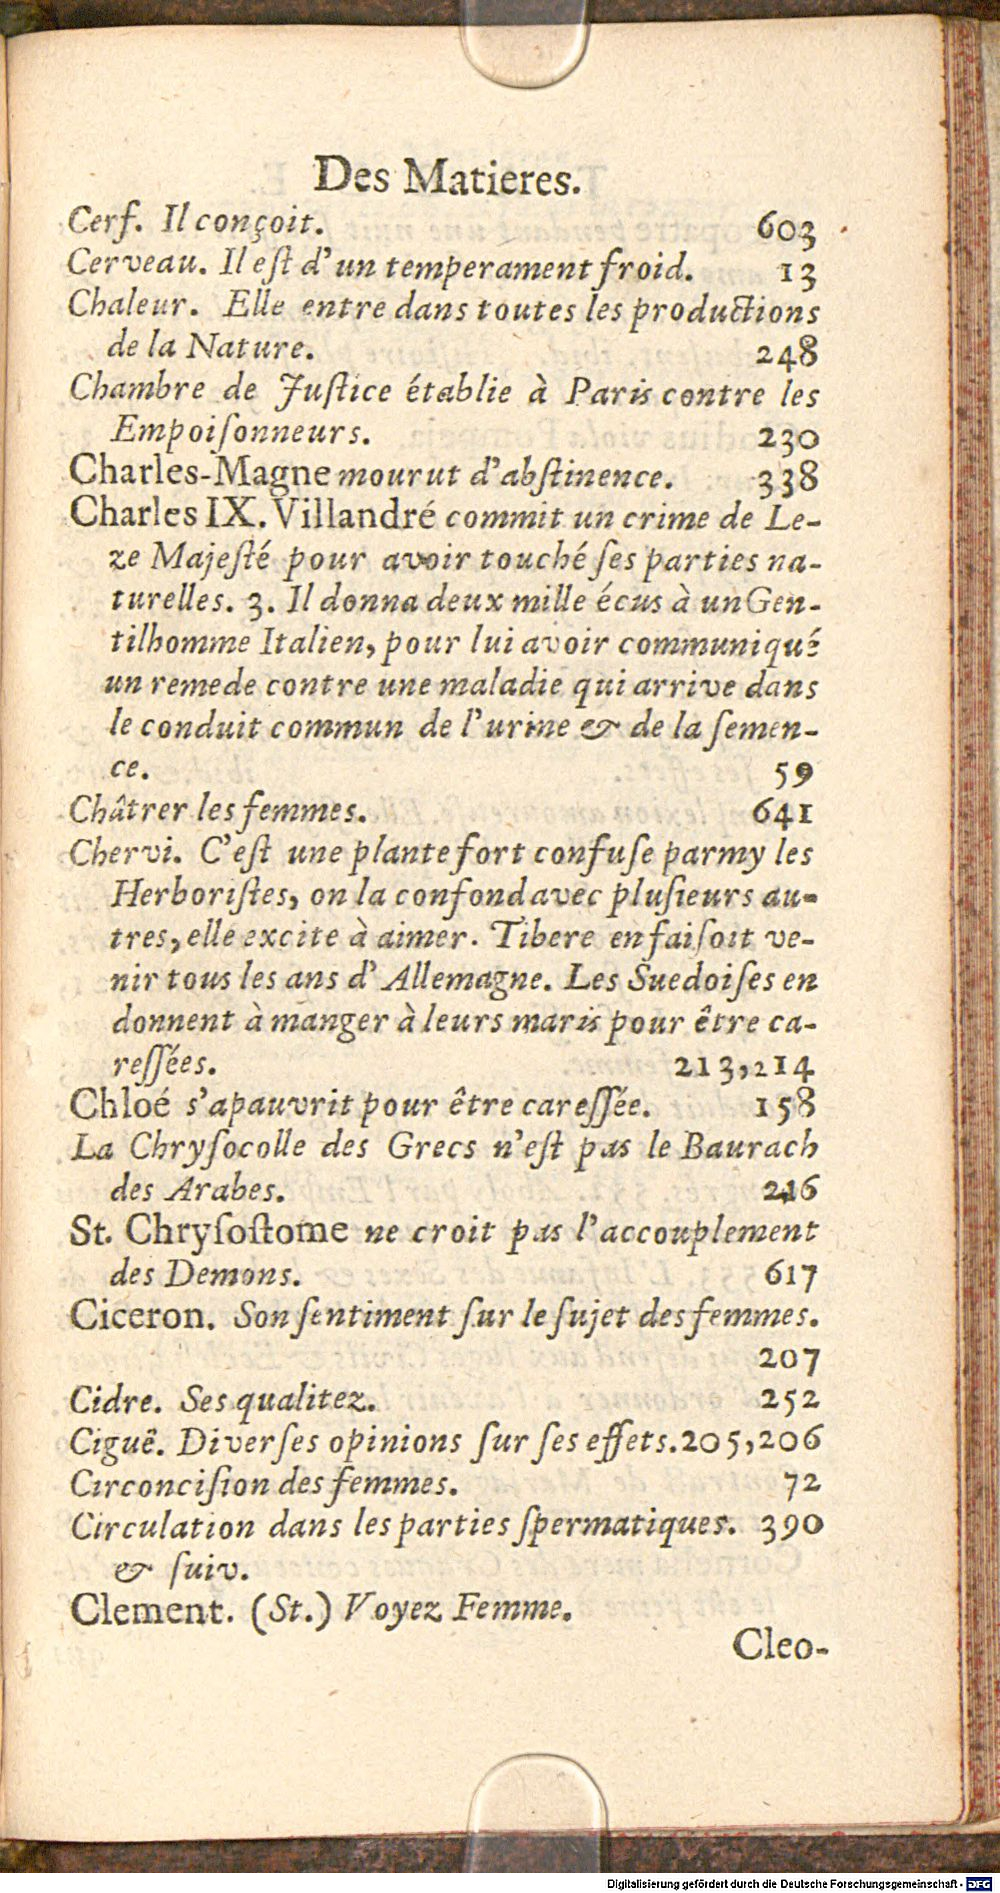 Des Matieres.
Cerf. Il conçoit. 603
Cerveau. Il eſt d'un temperament froid. 13
Chaleur. Elle entre dans toutes les productions
de la Nature. 248
Chambre de Juſtice établie à Paris contre les
Empoiſonneurs. 230
Charles-Magne mourut d'abſtinence. 338
Charles IX. Villandré commit un crime de Le-
ze Majeſté pour avoir touché ſes parties na-
turelles. 3. Il donna deux mille écus à un Gen-
tilhomme Italien, pour lui avoir communiqué
un remede contre une maladie qui arrive dans
le conduit commun de l'urine & de la ſemen-
ce. 59
Châtrer les femmes. 641
Chervi. C'eſt une plante fort confuſe parmy les
Herboriſtes, on la confond avec pluſieurs au-
tres, elle excite à aimer. Tibere en faiſoit ve-
nir tous les ans d'Allemagne. Les Suedoiſes en
donnent à manger à leurs maris pour être ca-
reſſées. 213, 214
Chloé s'apauvrit pour être careſſée. 158
La Chryſocolle des Grecs n'eſt pas le Baurach
des Arabes. 216
St. Chryſoſtome ne croit pas l'accouplement
des Demons. 617
Ciceron. Son ſentiment ſur le ſujet des femmes.
207
Cidre. Ses qualitez. 252
Ciguë. Diverſes opinions ſur ſes effets. 205, 206
Circonciſion des femmes. 72
Circulation dans les parties ſpermatiques. 390
& ſuiv.
Clement. (St.) Voyez Femme.
Cleo-
Digitalisierung gefördert durch die Deutsche Forschungsgemeinschaft - DFG